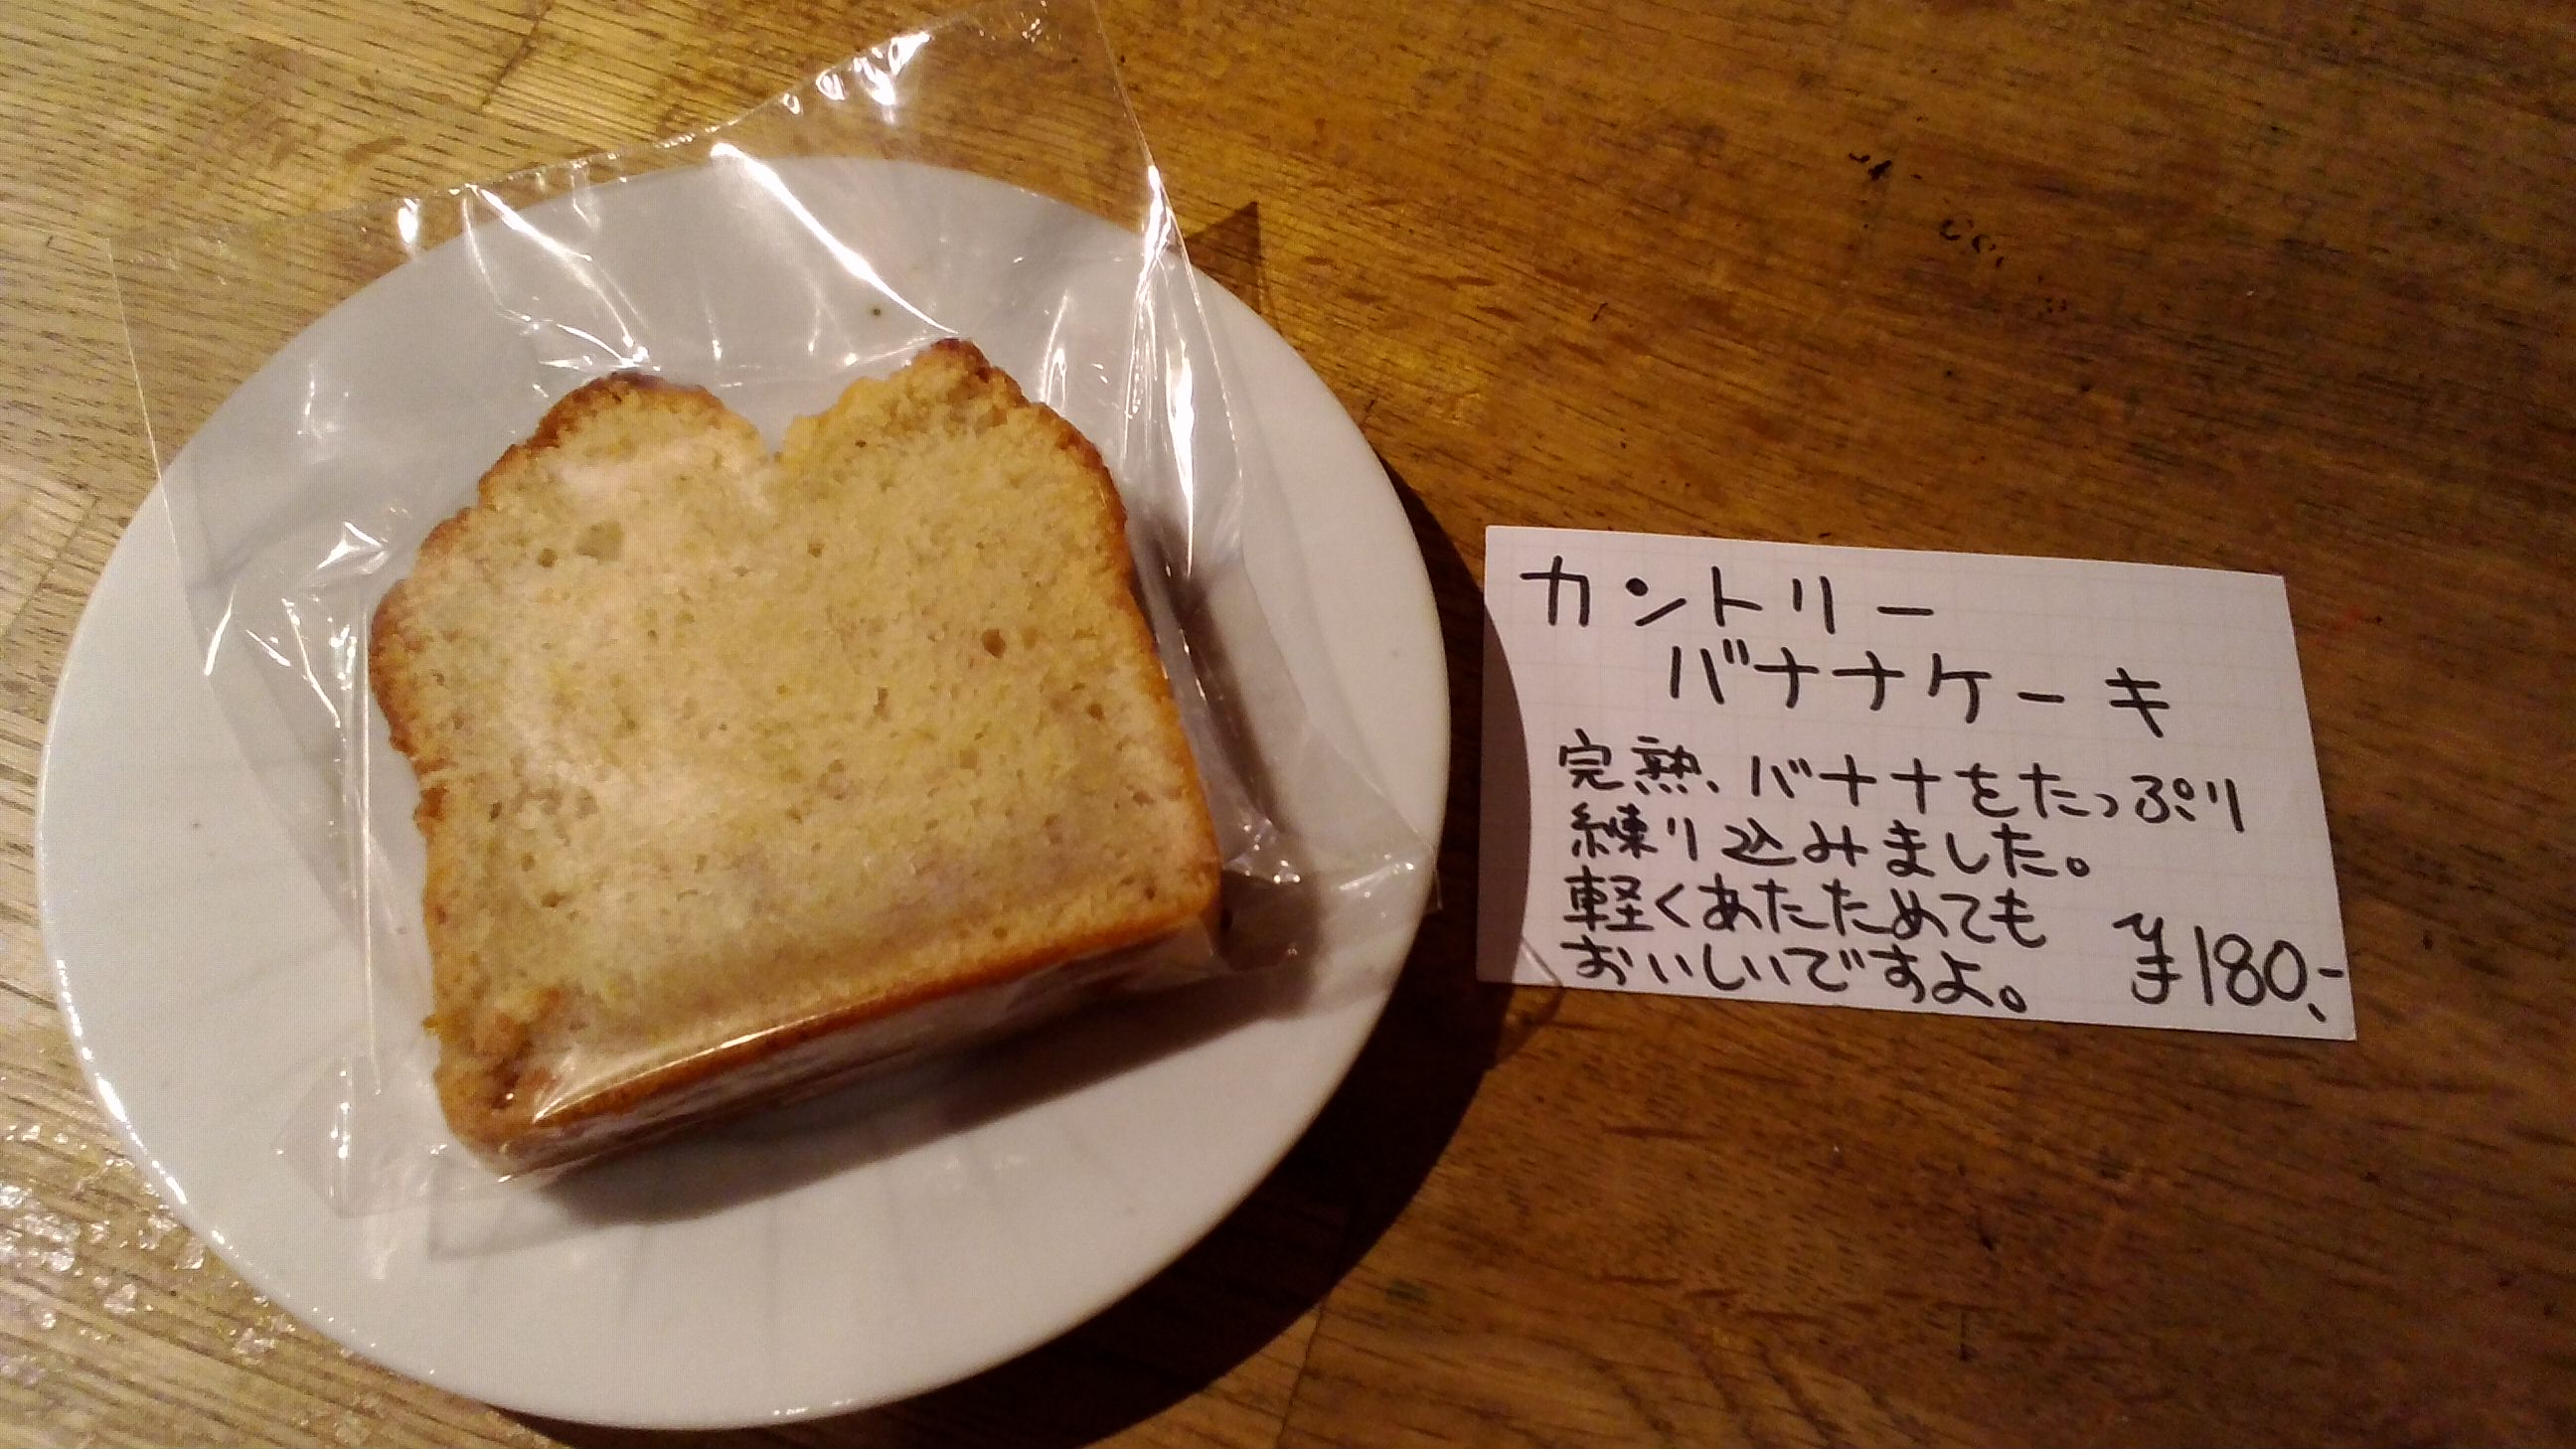 カントリー
バナナケーキ
完熟バナナをたっぷり
練り込みました。
軽くあたためても
おいしいですよ。
¥180,-